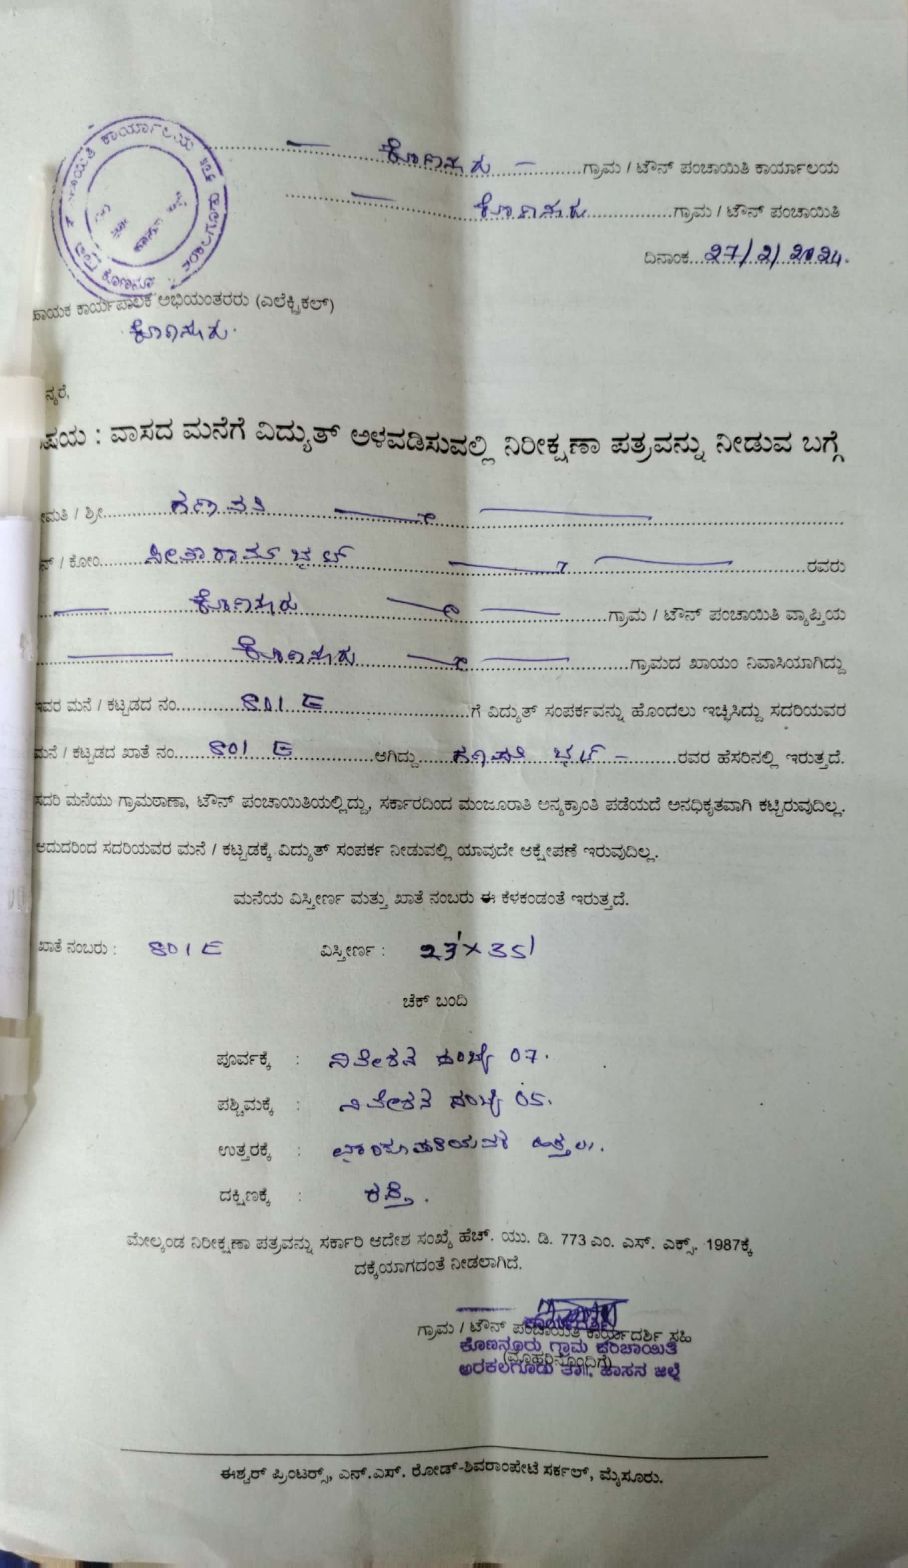 ಕೊಣನೂರು ಗ್ರಾಮ / ಟೌನ್ ಪಂಚಾಯಿತಿ ಕಾರ್ಯಾಲಯ
ಕೊಣನೂರು ಗ್ರಾಮ / ಟೌನ್ ಪಂಚಾಯಿತಿ
ದಿನಾಂಕ 27/2/2024.
ಕಾರ್ಯಪಾಲಕ ಅಭಿಯಂತರರು (ಎಲೆಕ್ಟ್ರಿಕಲ್)
ಕೊಣನೂರು.
: ವಾಸದ ಮನೆಗೆ ವಿದ್ಯುತ್ ಅಳವಡಿಸುವಲ್ಲಿ ನಿರೀಕ್ಷಣಾ ಪತ್ರವನ್ನು ನೀಡುವ ಬಗ್ಗೆ
/ ಶ್ರೀ ಗಣಪತಿ
/ ಕೋಂ ಸೀತಾರಾಮ್ ಭಟ್ ರವರು
ಕೊಣನೂರು ಗ್ರಾಮ / ಟೌನ್ ಪಂಚಾಯಿತಿ ವ್ಯಾಪ್ತಿಯ
ಕೊಣನೂರು ಗ್ರಾಮದ ಖಾಯಂ ನಿವಾಸಿಯಾಗಿದ್ದು
ಇವರ ಮನೆ / ಕಟ್ಟಡದ ನಂ 801 E ಗೆ ವಿದ್ಯುತ್ ಸಂಪರ್ಕವನ್ನು ಹೊಂದಲು ಇಚ್ಛಿಸಿದ್ದು ಸದರಿಯವರ
ಮನೆ / ಕಟ್ಟಡದ ಖಾತೆ ನಂ 801 E ಆಗಿದ್ದು ಗಣಪತಿ ಭಟ್ ರವರ ಹೆಸರಿನಲ್ಲಿ ಇರುತ್ತದೆ.
ಸದರಿ ಮನೆಯು ಗ್ರಾಮಠಾಣಾ, ಟೌನ್ ಪಂಚಾಯಿತಿಯಲ್ಲಿದ್ದು, ಸರ್ಕಾರದಿಂದ ಮಂಜೂರಾತಿ ಅನ್ಯಕ್ರಾಂತಿ ಪಡೆಯದೆ ಅನಧಿಕೃತವಾಗಿ ಕಟ್ಟಿರುವುದಿಲ್ಲ.
ಆದುದರಿಂದ ಸದರಿಯವರ ಮನೆ / ಕಟ್ಟಡಕ್ಕೆ ವಿದ್ಯುತ್ ಸಂಪರ್ಕ ನೀಡುವಲ್ಲಿ ಯಾವುದೇ ಆಕ್ಷೇಪಣೆ ಇರುವುದಿಲ್ಲ.
ಮನೆಯ ವಿಸ್ತೀರ್ಣ ಮತ್ತು ಖಾತೆ ನಂಬರು ಈ ಕೆಳಕಂಡಂತೆ ಇರುತ್ತದೆ.
ಖಾತೆ ನಂಬರು : 801 E ವಿಸ್ತೀರ್ಣ : 23'×35'
ಚೆಕ್ ಬಂದಿ
ಪೂರ್ವಕ್ಕೆ : ನಿವೇಶನ ಸಂಖ್ಯೆ 07.
ಪಶ್ಚಿಮಕ್ಕೆ : ನಿವೇಶನ ಸಂಖ್ಯೆ 05.
ಉತ್ತರಕ್ಕೆ :
ದಕ್ಷಿಣಕ್ಕೆ : ರಸ್ತೆ.
ಮೇಲ್ಕಂಡ ನಿರೀಕ್ಷಣಾ ಪತ್ರವನ್ನು ಸರ್ಕಾರಿ ಆದೇಶ ಸಂಖ್ಯೆ ಹೆಚ್. ಯು. ಡಿ. 773 ಎಂ. ಎಸ್. ಎಕ್ಸ್. 1987ಕ್ಕೆ
ದಕ್ಕೆಯಾಗದಂತೆ ನೀಡಲಾಗಿದೆ.
ಗ್ರಾಮ / ಟೌನ್ ಪಂಚಾಯಿತಿ ಕಾರ್ಯದರ್ಶಿ ಸಹಿ
ಕೊಣನೂರು ಗ್ರಾಮ ಪಂಚಾಯಿತಿ
(ಮೊಹರಿನೊಂದಿಗೆ)
ಅರಕಲಗೂಡು ತಾ॥, ಹಾಸನ ಜಿಲ್ಲೆ
ಈಶ್ವರ್ ಪ್ರಿಂಟರ್ಸ್, ಎನ್.ಎಸ್. ರೋಡ್-ಶಿವರಾಂಪೇಟೆ ಸರ್ಕಲ್, ಮೈಸೂರು.